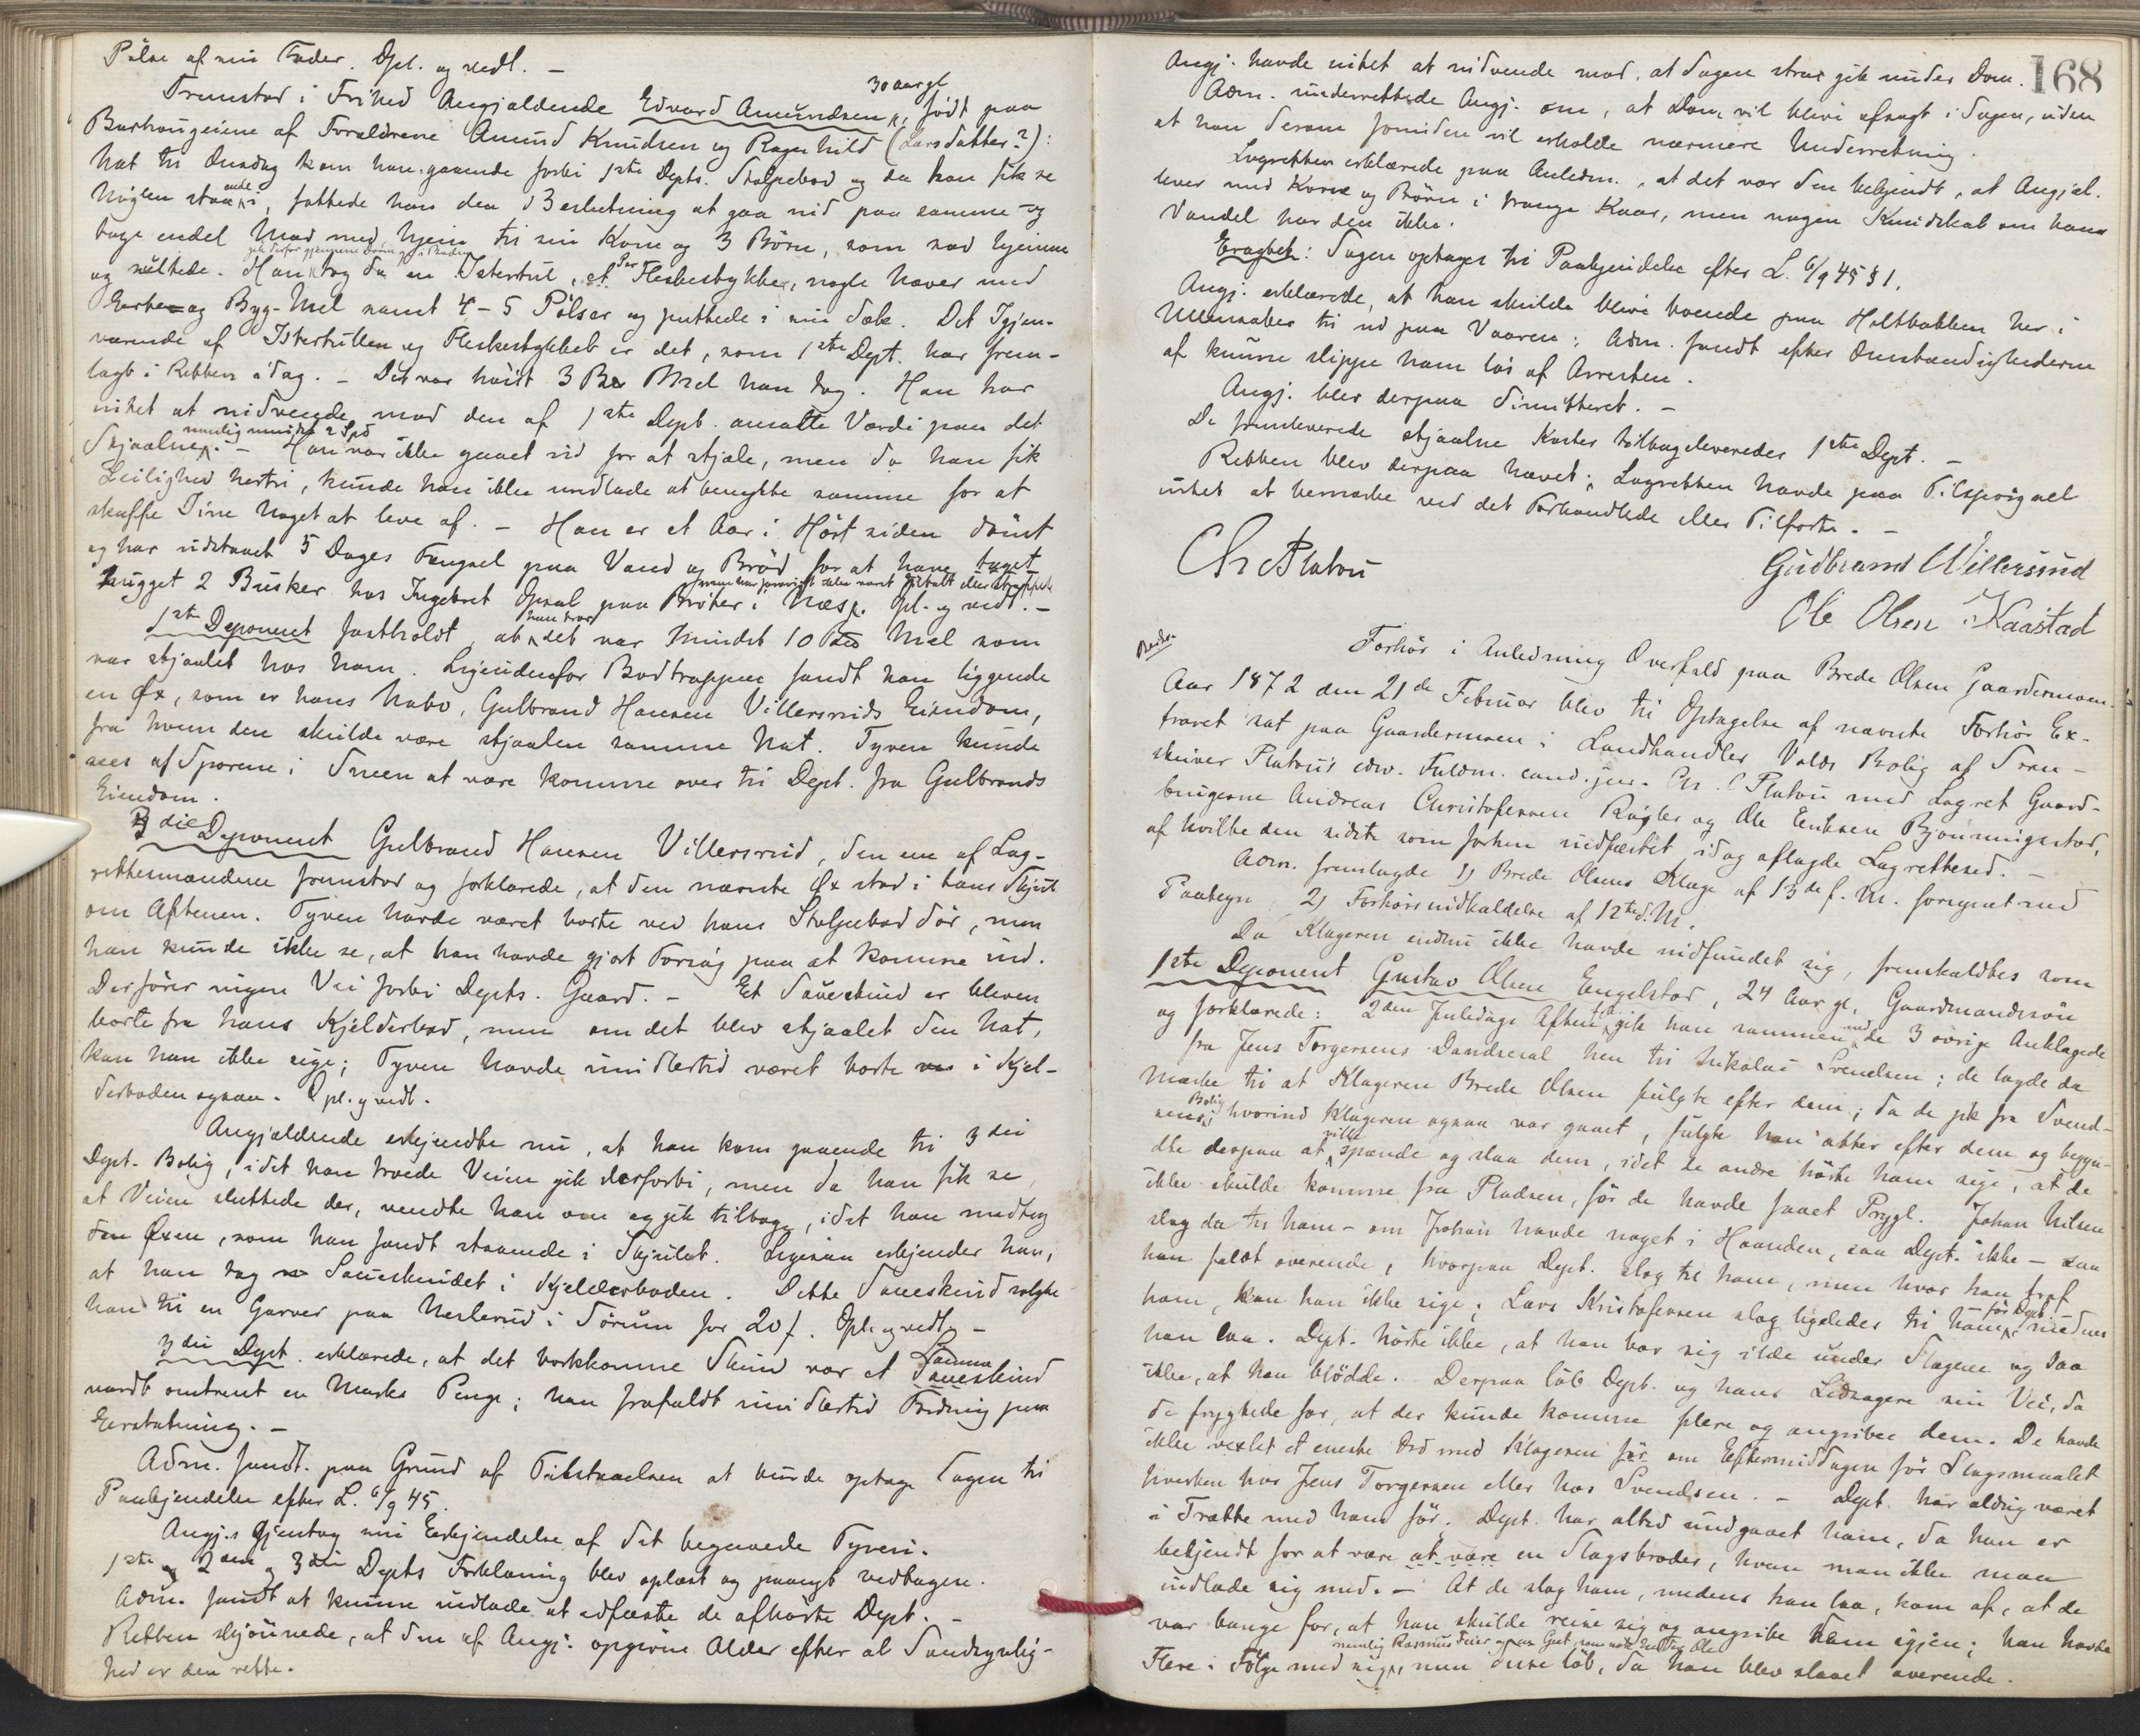 Pølse af min Fader. Opl. og vedt. —
Fremstod i Frihed Angjældende Edvard Amundsen, 30 aar gl. født paa
Barhougeiene af Forældrene Amund Knudsen og Ragnhild (Larsdatter?):
Nat til Onsdag kom han gaaende forbi 1ste Depts. Stolpebod og da han fik se
Nøglen staaende i, fattede han den Beslutning at gaa ind paa samme og
tage endel Mad med hjem til sin Kone og 3 Børn, som sad hjemme
og sultede. Han gik derfor gjennem Døren ind i Boden tog da en Istertul, et Par Fleskestykker, nogle Næver med
Erter og Byg-Mel samt 4-5 Pølser og puttede i sin Sæk. Det Igjen-
værende af Istertullen og Fleskestykket er det, som 1ste Dept. har frem-
lagt i Retten idag. — Det var høist 3 Bℳ Mel han tog. Han har
intet at indvende mod den af 1ste Dept. ansatte Værdi paa det
Stjaalne, nemlig mindst 2 Spd. — Han var ikke gaaet ud for at stjæle, men da han fik
Leilighed hertil, kunde han ikke undlade at benytte samme for at
skaffe Sine Noget at leve af. — Han er et Aar i Høst siden dømt
og har udstaaet 5 Dages Fængsel paa Vand og Brød for at have taget
hugget 2 Busker hos Ingebret Opsal paa Brøher i Næs, men har forøvrigt ikke været tiltalt eller straffet. Opl. og vedt. —
1ste Deponent fastholdt, at han tror det var mindst 10 Mel som
var stjaalet hos ham. Ligeudenfor Bodtrappen fandt han liggende
en Øx, som er hans Nabo, Gulbrand Hansen Villersruds Eiendom,
fra hvem den skulde være stjaalen samme Nat. Tyven kunde
sees af Sporene i Sneen at være komme over til Dept. fra Gulbrands
Eiendom.
3die Deponent Gulbrand Hansen Villersrud, den ene af Lag-
rettesmændene fremstod og forklarede, at den nævnte Øx stod i hans Skjul
om Aftenen. Tyven havde været borte ved hans Stolpebod dør, men
han kunde ikke se, at han havde gjort Forsøg paa at komme ind.
Der fører ingen Vei forbi Depts. Gaard. — Et Saueskind er bleven
borte fra hans Kjelderbod, men om det blev stjaalet den Nat,
kan han ikke sige; Tyven havde imidlertid været borte i Kjel-
derboden ogsaa. Opl. og vedt.
Angjældende erkjendte nu, at han kom gaaende til 3die
Dept. Bolig, idet han troede Veien gik derforbi, men da han fik se,
at Veien sluttede der, vendte han om og gik tilbage, idet han medtog
den Øxen, som han fandt staaende i Skjulet. Ligesaa erkjender han,
at han tog Saueskindet i Kjelderboden. Dette Saueskind solgte
han til en Garver paa Nerlerud i Sørum for 20 f. Opl. og vedt. —
3die Dept. erklærede, at det bortkomne Skind var et Lamme Saueskind
værdt omtrent en Marks Penge; han frafaldt imidlertid Fordring paa
Erstatning. —
Adm. fandt paa Grund af Tilstaaelsen at burde optage Sagen til
Paakjendelse efter L. 6/9 45.
Angj. gjentog sin Erkjendelse af det begaaede Tyveri.
1ste og 2den og 3die Depts Forklaring blev oplæst og paanyt vedtagen.
Adm. fandt at kunne undlade at edfæste de afhørte Dept. —
Retten skjønnede, at den af Angj. opgivne Alder efter al Sandsynlig-
hed er den rette.
168
Angj. havde intet at indvende mod, at Sagen strax gik under Dom.
Adm. underrettede Angj. om, at Dom vil blive afsagt i Sagen, uden
at han derom foruden vil erholde nærmere Underretning.
Lagretten erklærede paa Anledn., at det var den bekjendt, at Angjæl.
lever med Kone og Børn i trange Kaar, men nogen Kundskab om hans
Vandel har den ikke.
Eragtet: Sagen optages til Paakjendelse efter L. 6/9 45 § 1.
Angj. erklærede, at han skulde blive boende paa Holtbakken her i
Ullensaker til ud paa Vaaren; Adm. fandt efter Omstændighederne
at kunne slippe ham løs af Arresten.
Angj. blev derpaa dimitteret. —
De fremleverede stjaalne Koster tilbageleveredes 1ste Dept. —
Retten blev derpaa hævet; Lagretten havde paa Tilspørgsel
intet at bemærke ved det Forhandlede eller Tilførte. —
Chr Platou
Gudbrand Willersrud
Ole Olsen Kaastad
Forhør i Anledning Overfald paa Brede Olsen Gaardermoen.
Aar 1872 den 21de Februar blev til Optagelse af nævnte Forhør Ex-
traret sat paa Gaardermoen i Landhandler Volds Bolig af Soren-
skriver Platou's edsv. Fuldm. cand. jur. Chr. C Platou med Lagret Gaard-
brugerne Andreas Christofersen Rugler og Ole Eriksen Bjønningstad,
af hvilke den sidste som forhen uedfæstet idag aflagde Lagrettesed. —
Adm. fremlagde 1) Brede Olsens Klage af 13de f. M. forsynet med
Paategn. 2) Forhørsindkaldelse af 12te d. M.
Da Klageren endnu ikke havde indfundet sig, fremkaldtes som
1ste Deponent Gustav Olsen Engelstad, 24 Aar gl., Gaardmandssøn
og forklarede: 2den Juledags Aften gik han sammen med de 3 øvrige Anklagede
fra Jens Torgersens Dandsesal hen til Nikolai Svendsen; de lagde da
Mærke til at Klageren Brede Olsen fulgte efter dem; da de gik fra Svend-
sens Bolig, hvorind Klageren ogsaa var gaaet, fulgte han atter efter dem og begyn-
dte derpaa at ville spænde og slaa dem, idet de andre hørte ham sige, at de
ikke skulde komme fra Pladsen, før de havde faaet Prygl. Johan Nilsen
slog da til ham — om Johan havde noget i Haanden, saa Dept. ikke — saa
han faldt overende, hvorpaa Dept. slog til ham, men hvor han traf
ham, kan han ikke sige; Lars Kristofersen slog ligeledes til ham før Dept., medens
han laa. Dept. hørte ikke, at han bar sig ilde under Slagene og saa
ikke, at han blødde. Derpaa løb Dept. og hans Ledsagere sin Vei, da
de frygtede for, at der kunde komme flere og angribe dem. De havde
ikke vexlet et eneste Ord med Klageren før om Eftermiddagen før Slagsmaalet
hverken hos Jens Torgersen eller hos Svendsen. — Dept. har aldrig været
i Trætte med ham før. Dept. har altid undgaaet ham, da han er
bekjendt for at være at være en Slagsbroder, hvem man ikke maa
indlade sig med. — At de slog ham, medens han laa, kom af, at de
var bange for, at han skulde reise sig og angribe dem igjen; han havde
Flere i Følge med sig, men disse løb, da han blev slaaet overende.